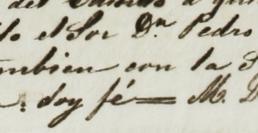 del
lo el Sor Dn Pedro
mbien con la S
doy fé = M. D